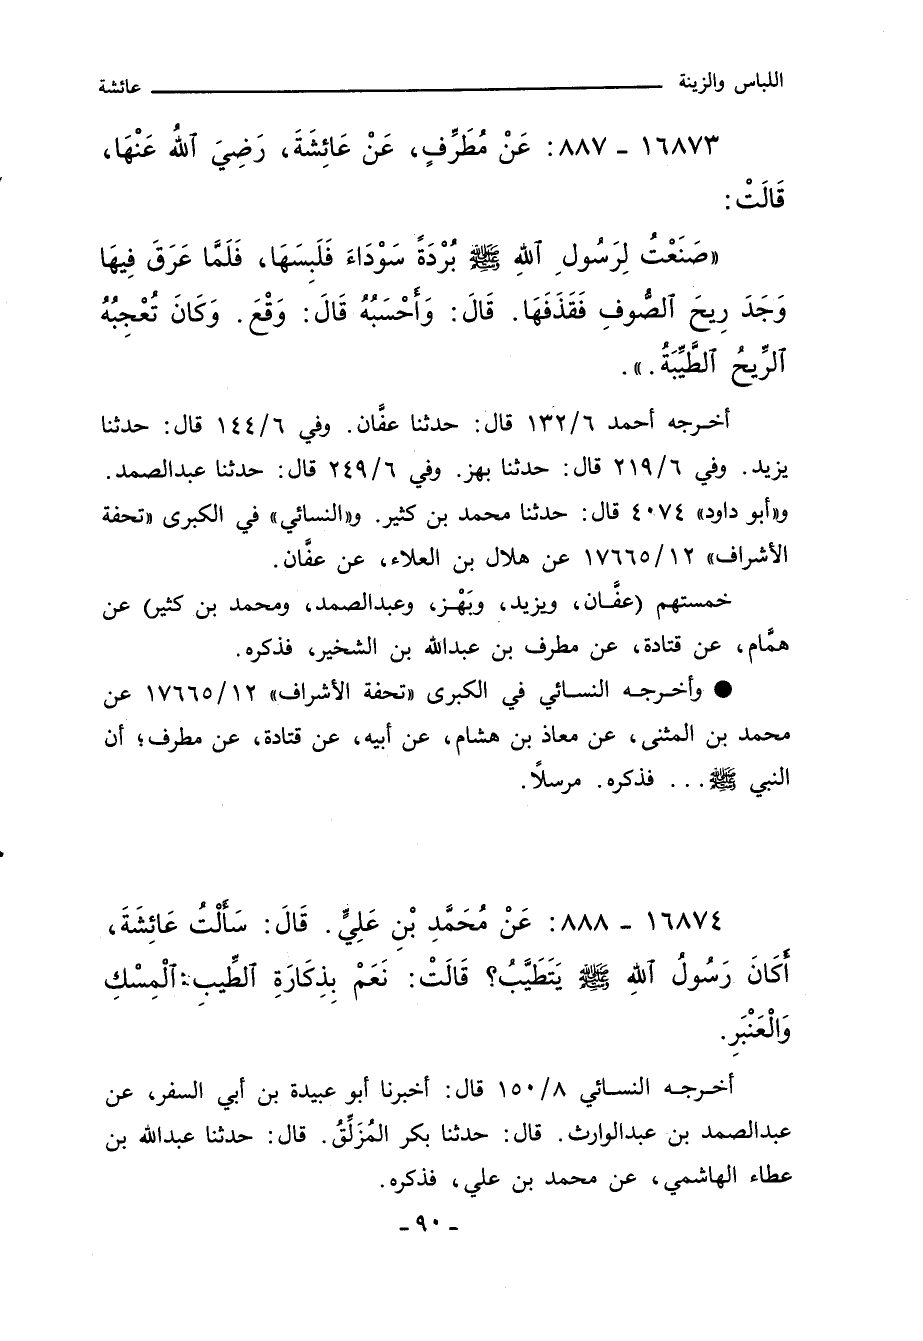 اللباس والزينة ــــــــــــــــــــ عائشة
١٦٨٧٣ ـ ٨٨٧: عَنْ مُطَرِّفٍ، عَنْ عَائِشَةَ، رَضِيَ ٱللهُ عَنْهَا،
قَالَتْ:
«صَنَعْتُ لِرَسُولِ ٱللهِ ﷺ بُرْدَةً سَوْدَاءَ فَلَبِسَهَا، فَلَمَّا عَرَقَ فِيهَا
وَجَدَ رِيحَ ٱلصُّوفِ فَقَذَفَهَا. قَالَ: وَأَحْسَبُهُ قَالَ: وَقْعَ. وَكَانَ تُعْجِبُهُ
ٱلرِّيحُ ٱلطَّيِّبَةُ.».
أخرجه أحمد ١٣٢/٦ قال: حدثنا عفَّان. وفي ١٤٤/٦ قال: حدثنا
يزيد. وفي ٢١٩/٦ قال: حدثنا بهز. وفي ٢٤٩/٦ قال: حدثنا عبدالصمد.
و«أبو داود» ٤٠٧٤ قال: حدثنا محمد بن كثير. و«النسائي» في الكبرى «تحفة
الأشراف» ١٧٦٦٥/١٢ عن هلال بن العلاء، عن عفَّان.
خمستهم (عفَّان، ويزيد، وبَهْز، وعبدالصمد، ومحمد بن كثير) عن
همَّام، عن قتادة، عن مطرف بن عبدالله بن الشخير، فذكره.
● وأخرجه النسائي في الكبرى «تحفة الأشراف» ١٧٦٦٥/١٢ عن
محمد بن المثنى، عن معاذ بن هشام، عن أبيه، عن قتادة، عن مطرف؛ أن
النبي ﷺ... فذكره. مرسلاً.
١٦٨٧٤ ـ ٨٨٨: عَنْ مُحَمَّدِ بْنِ عَلِيٍّ. قَالَ: سَأَلْتُ عَائِشَةَ،
أَكَانَ رَسُولُ ٱللهِ ﷺ يَتَطَيَّبُ؟ قَالَتْ: نَعَمْ بِذِكَارَةِ ٱلطِّيبِ: ٱلْمِسْكِ
وَالْعَنْبَرِ.
أخرجه النسائي ١٥٠/٨ قال: أخبرنا أبو عبيدة بن أبي السفر، عن
عبدالصمد بن عبدالوارث. قال: حدثنا بكر المُزَلِّقُ. قال: حدثنا عبدالله بن
عطاء الهاشمي، عن محمد بن علي، فذكره.
ـ ٩٠ ـ